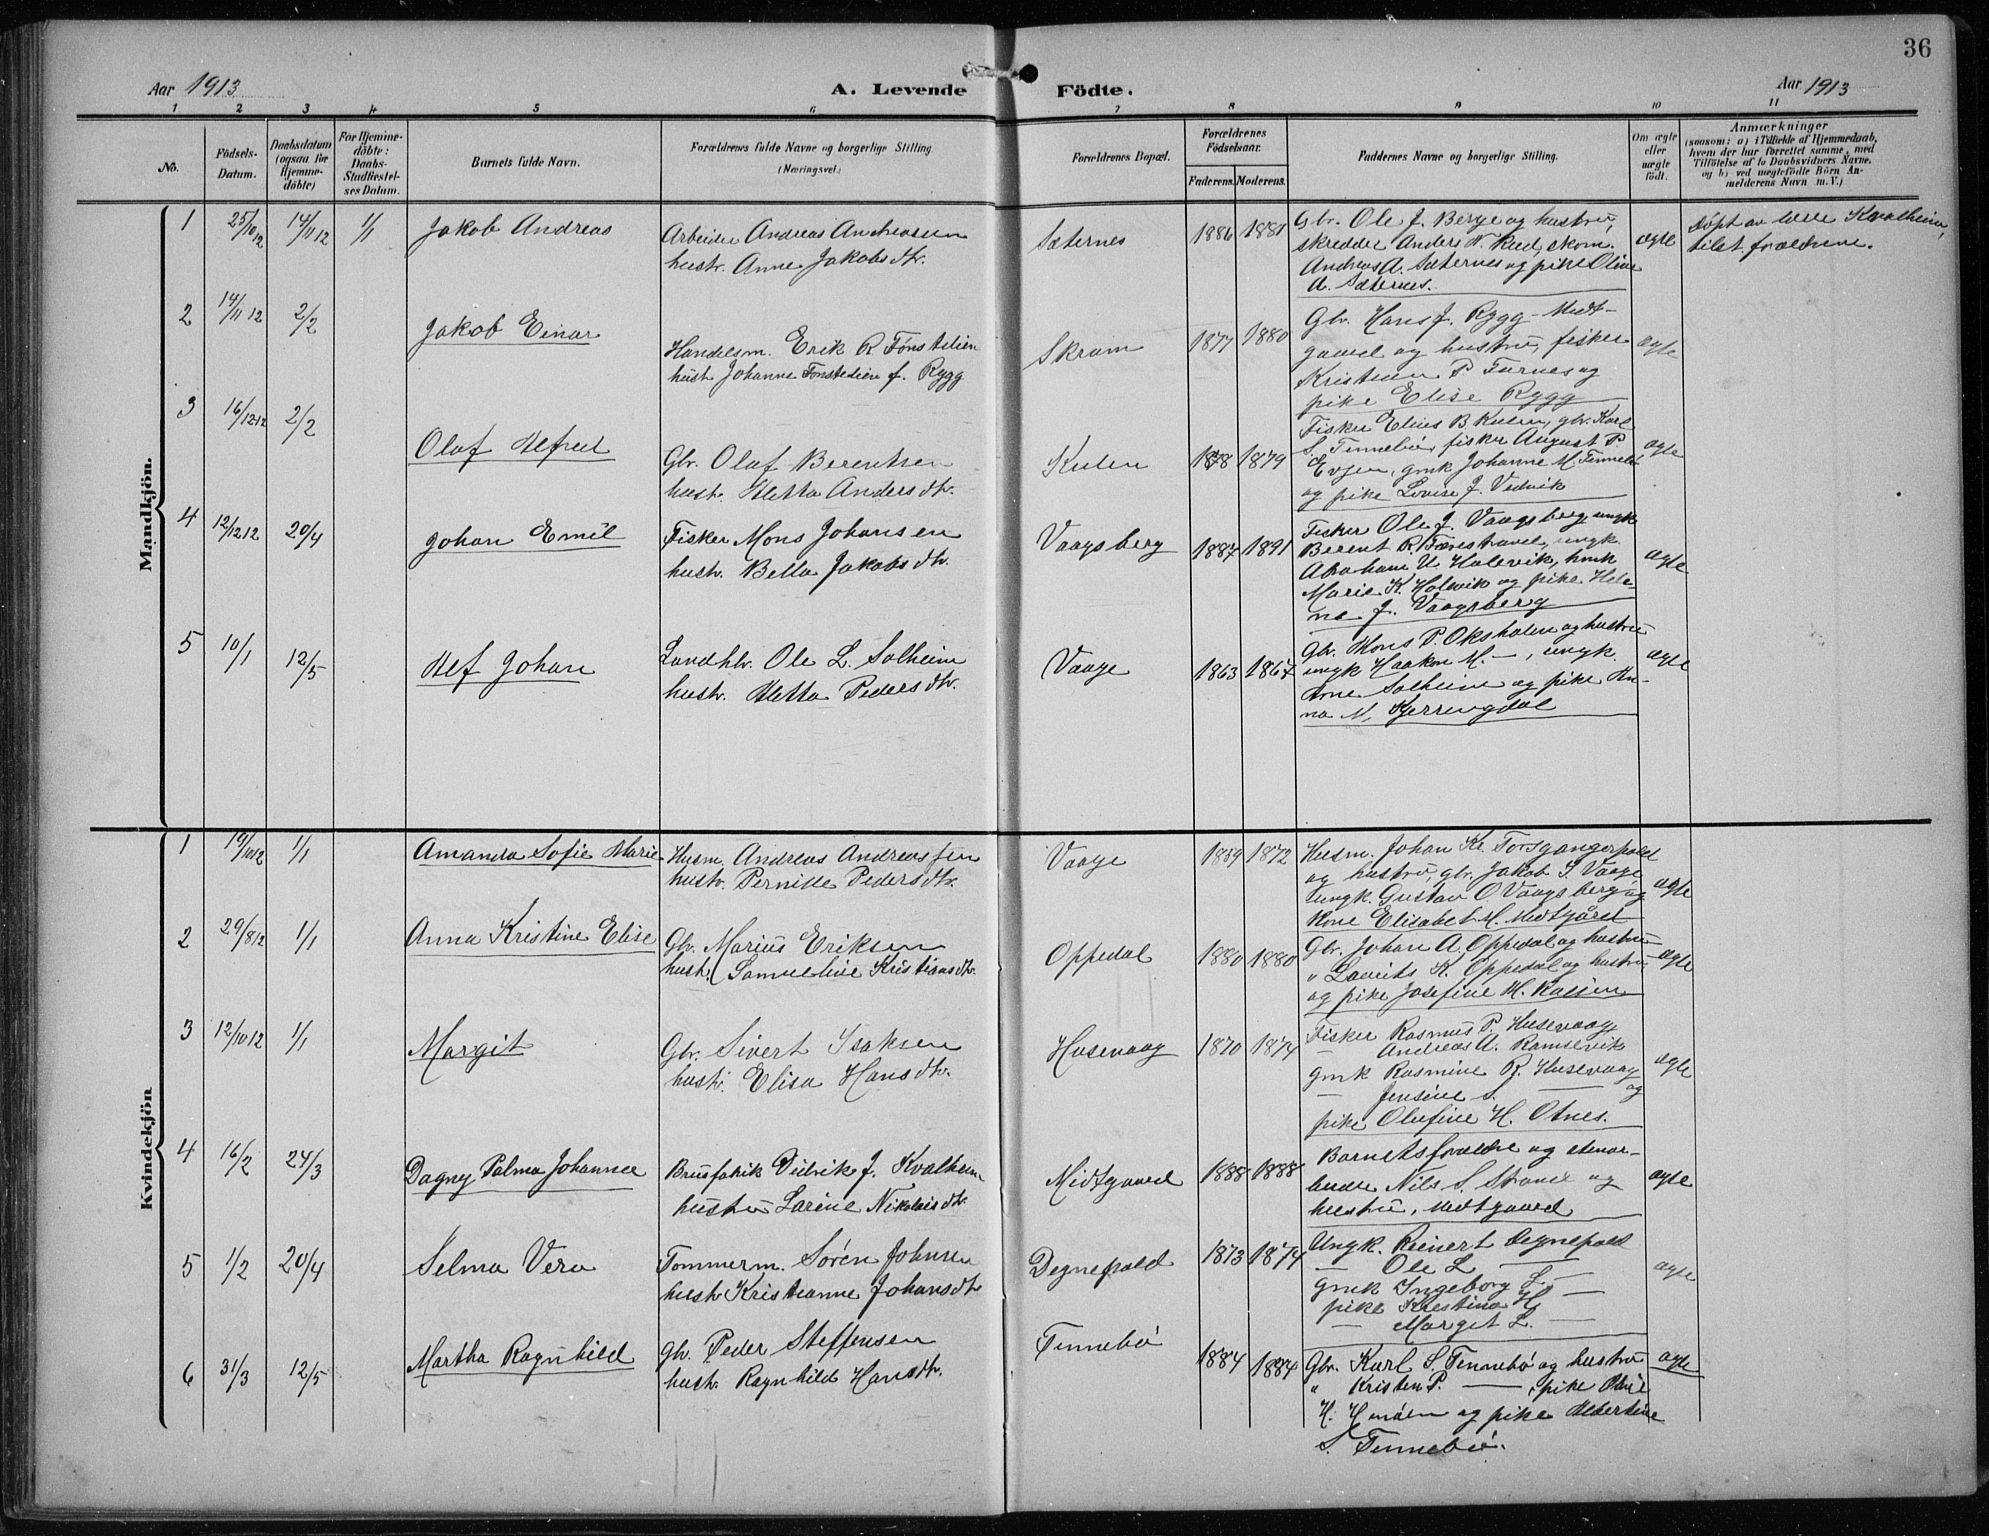 36
Aar 1913
A. Levende Födte.
Aar 1913
1 2 3 4 5 6 7 8 9 10 11
No.
Födsels-Datum.
Daabsdatum (ogsaa för Hjemme-döbte)
For Hjemme-döbte: Daabs-Stadfæstel-ses Datum.
Barnets fulde Navn.
Forældrenes fulde Navne og borgerlige Stilling. (Næringsvei.)
Forældrenes Bopæl.
Forældrenes Födselsaar.
Faderens. Moderens.
Faddernes Navne og borgerlige Stilling.
Om ægte eller uægte födt.
Anmærkninger
(saasom: a) i Tilfælde af Hjemmedaab,
hvem der har forrettet samme, med
Tilföielse af to Daabsvidners Navne.
og b) ved uægtefödte Börn An-
melderens Navn m. V.)
Mandkjön.
1 25/10 12 14/11 12 1/1 Jakob Andreas
Arbeider Andreas Andreassen
hustr. Anne Jakobsdtr.
Sæternes 1886 1881
Gbr. Ole J. Berge og hustru,
skredder Anders N. Rud, skom.
Andreas A. Sæternes og pike Oline
A. Sæternes.
ægte
Døpt av lærer Kvalheim,
tilst. forældrene.
2 14/11 12 2/2 Jakob Einar
Handelsm. Erik R Tønstelien
hustr. Johanne Tønstelien f. Rygg
Skram 1877 1880
Gbr. Hans J. Rygg Midt-
gaard og hustru, fisker
Kristian P. Furnes og
pike Elise Rygg
ægte
3 16/12 12 2/2 Olaf Alfred
Gbr. Olaf Berentsen
hustr. Aletta Andersdtr.
Kulen 1878 1879
Fisker Elias B Kulen, gbr. Karl
S. Tennebø, fisker August P.
Evjen, gmk Johanne M. Tennebø
og pike Lovise J. Vedvik
ægte
4 12/12 12 20/4 Johan Emil
Fisker Mons Johansen
hustr. Bella Jakobsdtr.
Vaagsberg 1887 1891
Fisker Ole J. Vaagsberg, ungk
Berent R. Færestravel, ungk
Abraham U. Halevik, hmk
Marie K. Halevik og pike Hele-
na J. Vaagsberg
ægte
5 10/1 12/5 Alf Johan
Landhlr. Ole L. Solheim
hustr. Aletta Pedersdtr.
Vaage 1863 1867
Gbr. Mons P. Oksholen og hustru
ungk Haakon M. —, ungk.
Arne Solheim og pike An-
na M. Kjerringdal
ægte
Kvindekjön
1 19/10 12 1/1 Amanda Sofie Marie
Husm. Andreas Andreassen
hustr. Pernille Pedersdtr.
Vaage 1869 1872
Husm. Johan K. Torsgangerpold
og hustru, gbr. Jakob S. Vaage
ungk. Gustav O Vaagsberg og
Kone Elisabet M. Midtgård
ægte
2 29/8 12 1/1 Anna Kristine Elise
Gbr. Marius Eriksen
hustr. Samueline Kristiansdtr.
Oppedal 1880 1880
Gbr. Johan A. Oppedal og hustru
" Laurits K. Oppedal og hustru
og pike Josefine M. Raajen
ægte
3 12/10 12 1/1 Margit
Gbr. Sivert Isaksen
hustr. Elisa Hansdtr.
Husevaag 1870 1874
Fisker Rasmus P. Husevaag
— Andreas A. Ramsevik
gmk Rasmine R. Husevaag
— Jensine S. — og
pike Olufine H. Otnes.
ægte
4 16/2 24/3 Dagny Palma Johannea
Brusfabrik Didrik J. Kvalheim
hustru Larine Nikolaisdtr.
Midtgaard 1888 1888
Barnets forældre og stenar-
beider Nils S. Strand og
hustru, Midtgaard
ægte
5 1/2 20/4 Selma Vera
Tømmerm. Søren Johnsen
hustr Kristianne Johansdtr
Degnepold 1873 1874
Ungk. Reinert Degnepold
— Ole L —
gmk Ingeborg L. —
pike Kristina H
— Margit L. —
ægte
6 31/3 12/5 Martha Ragnhild
Gbr. Peder Steffensen
hustr. Ragnhild Hansdtr.
Tennebø 1884 1884
Gbr. Karl S. Tennebø og hustru
" Kristen P. — , pike Olive
H. Henden og pike Albertine
S. Tennebø.
ægte